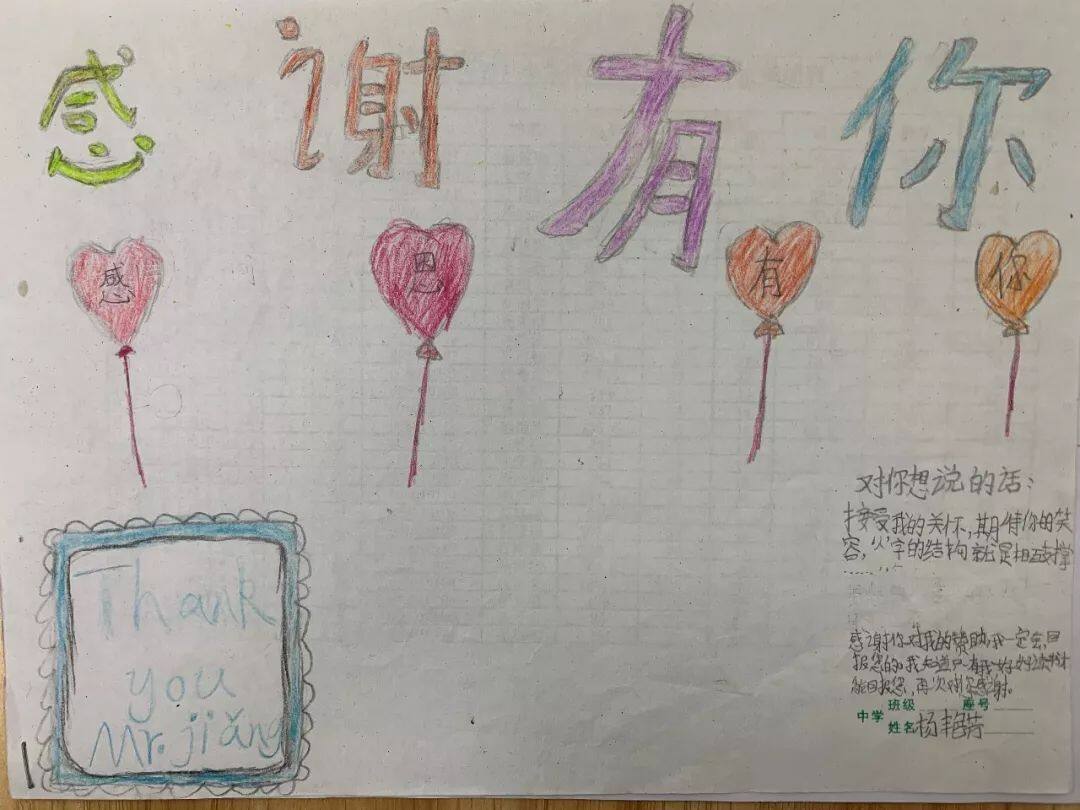 感谢有你
感 恩 有 你
Thank
you
Mr. jiǎng
对你想说的话：
接受我的关怀，期待你的笑
容，“人”字的结构就是相互支撑
……
感谢你对我的帮助，我一定会回
报您的，我知道只有我好好读书才
能回报您，再次对你感谢。
班级 座号
中学
姓名 杨艳芳